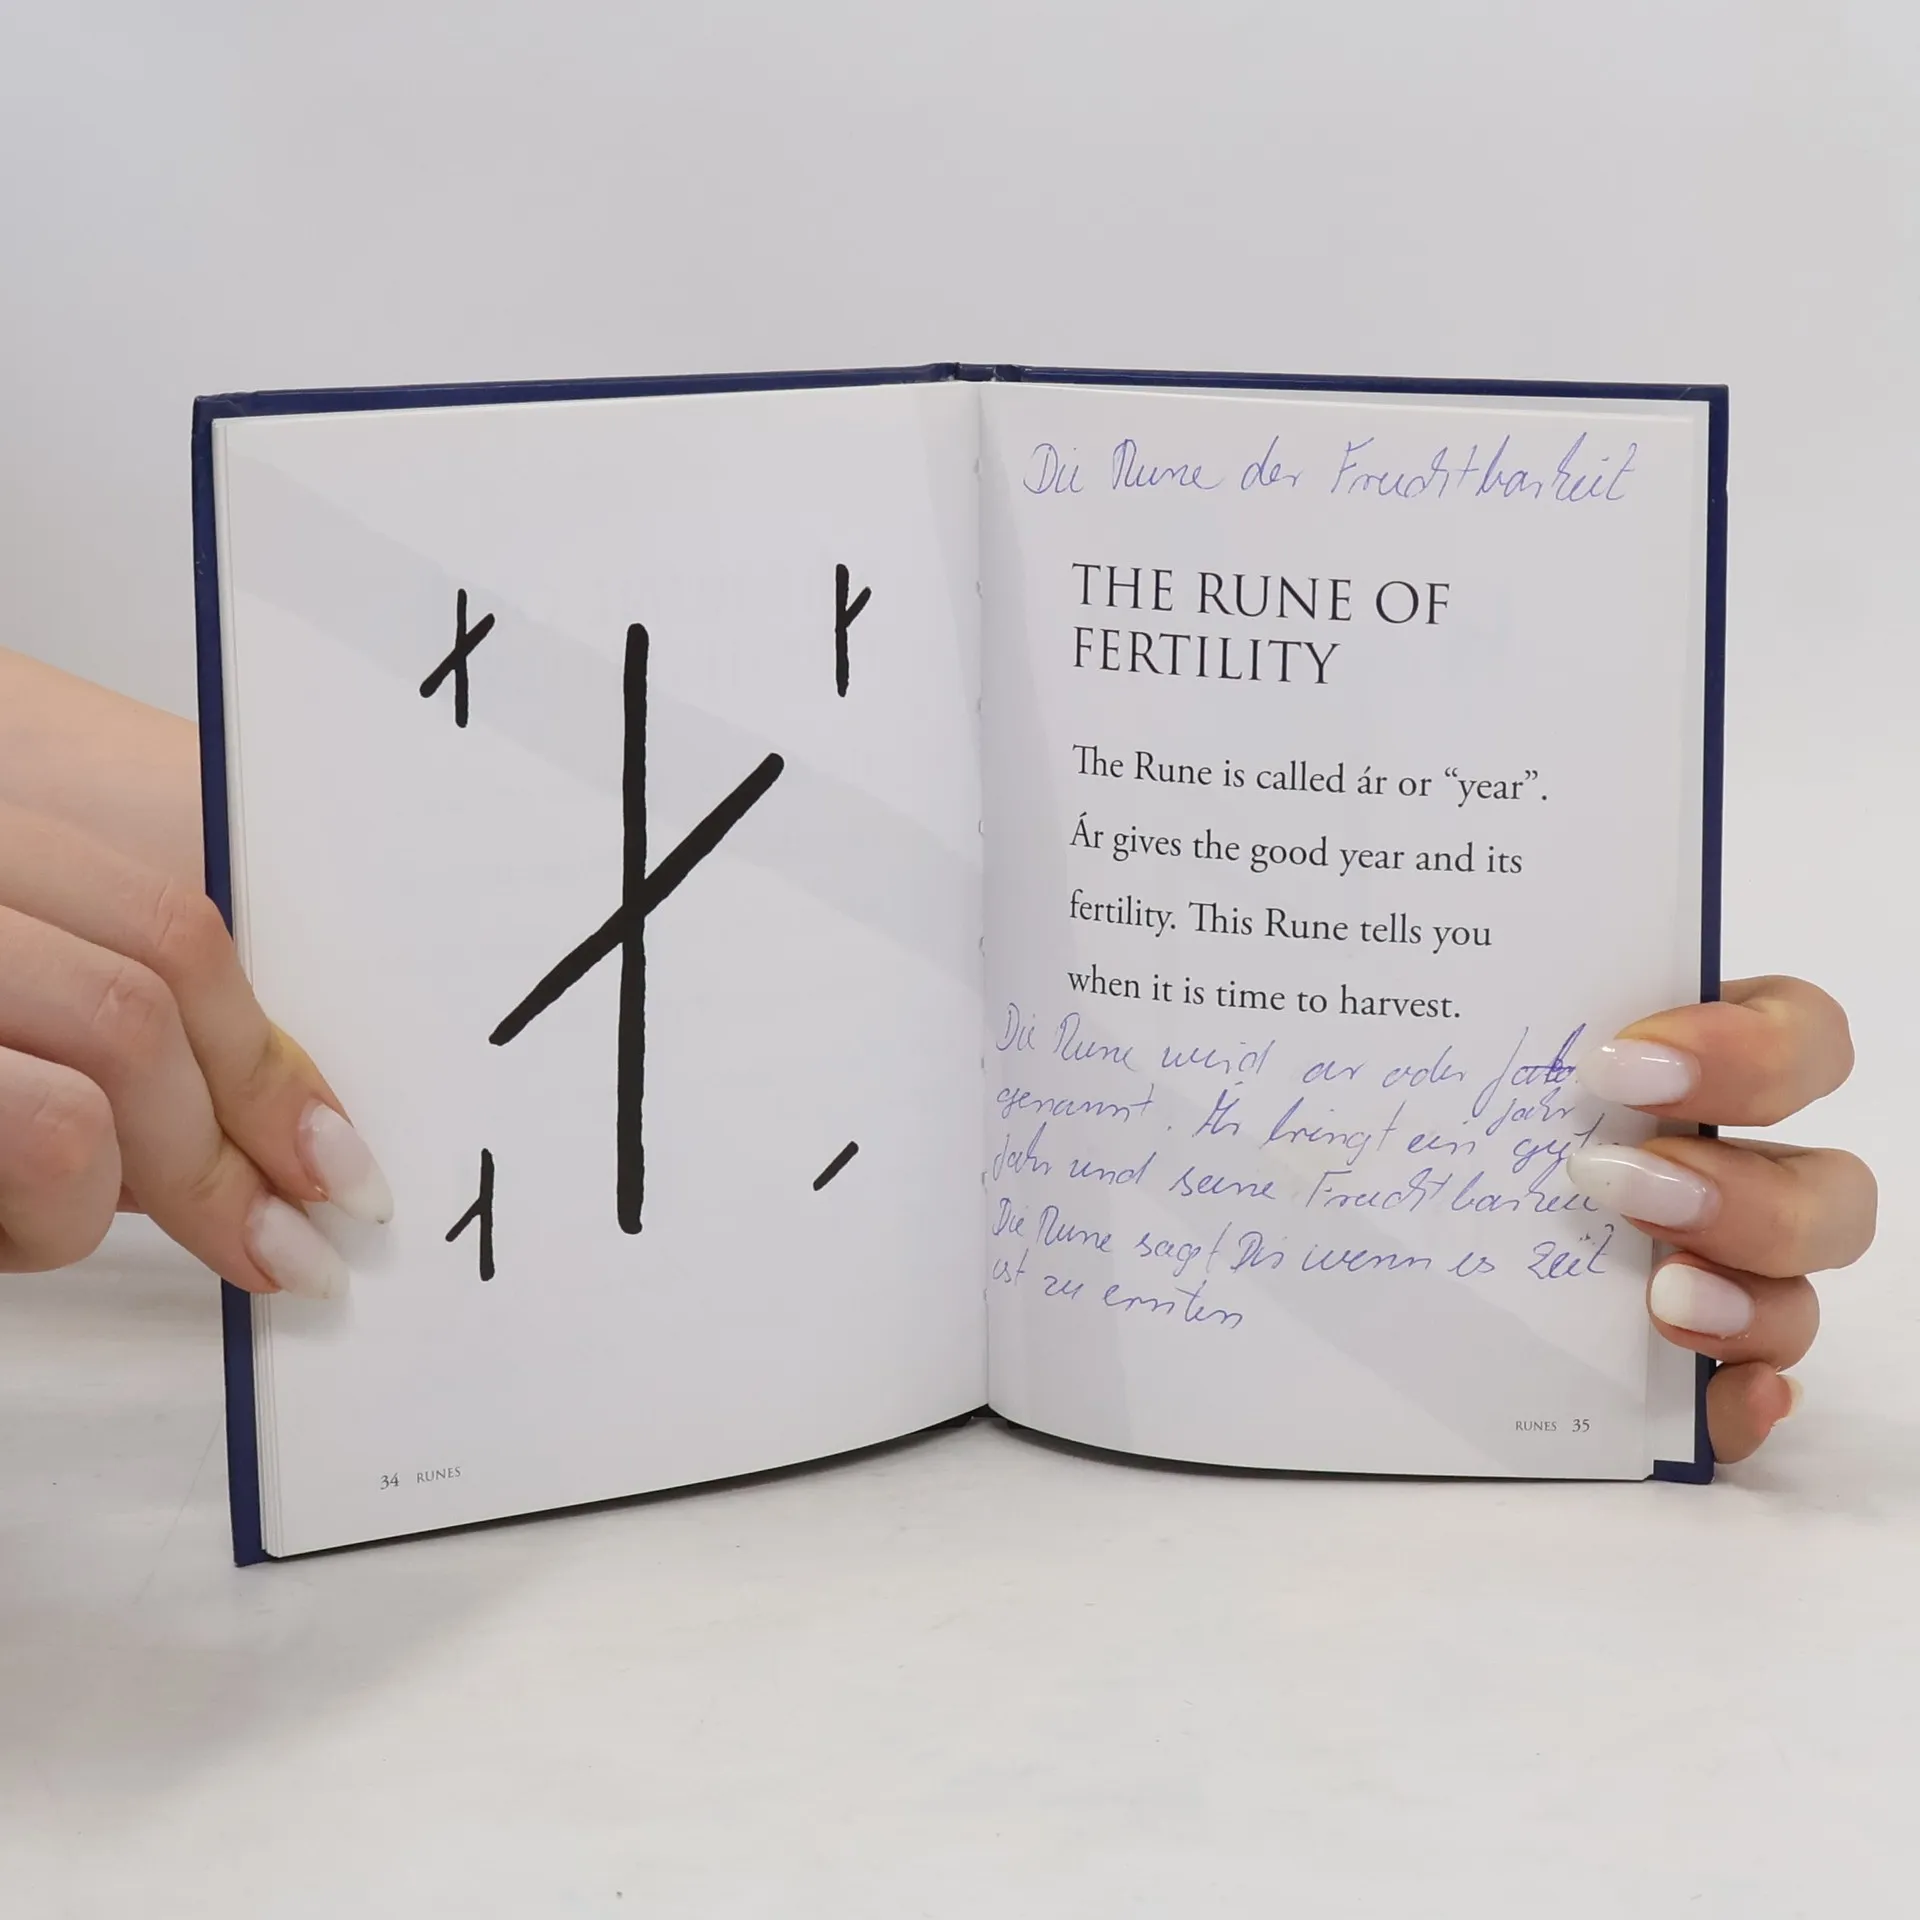 34 RUNES
Die Rune der Fruchtbarkeit
THE RUNE OF
FERTILITY
The Rune is called ár or “year”.
Ár gives the good year and its
fertility. This Rune tells you
when it is time to harvest.
Die Rune wird ar oder
genannt. Ár bringt ein Jahr
Jahr und seine Fruchtbarkeit
Die Rune sagt Dir wenn es Zeit
ist zu ernten
RUNES 35